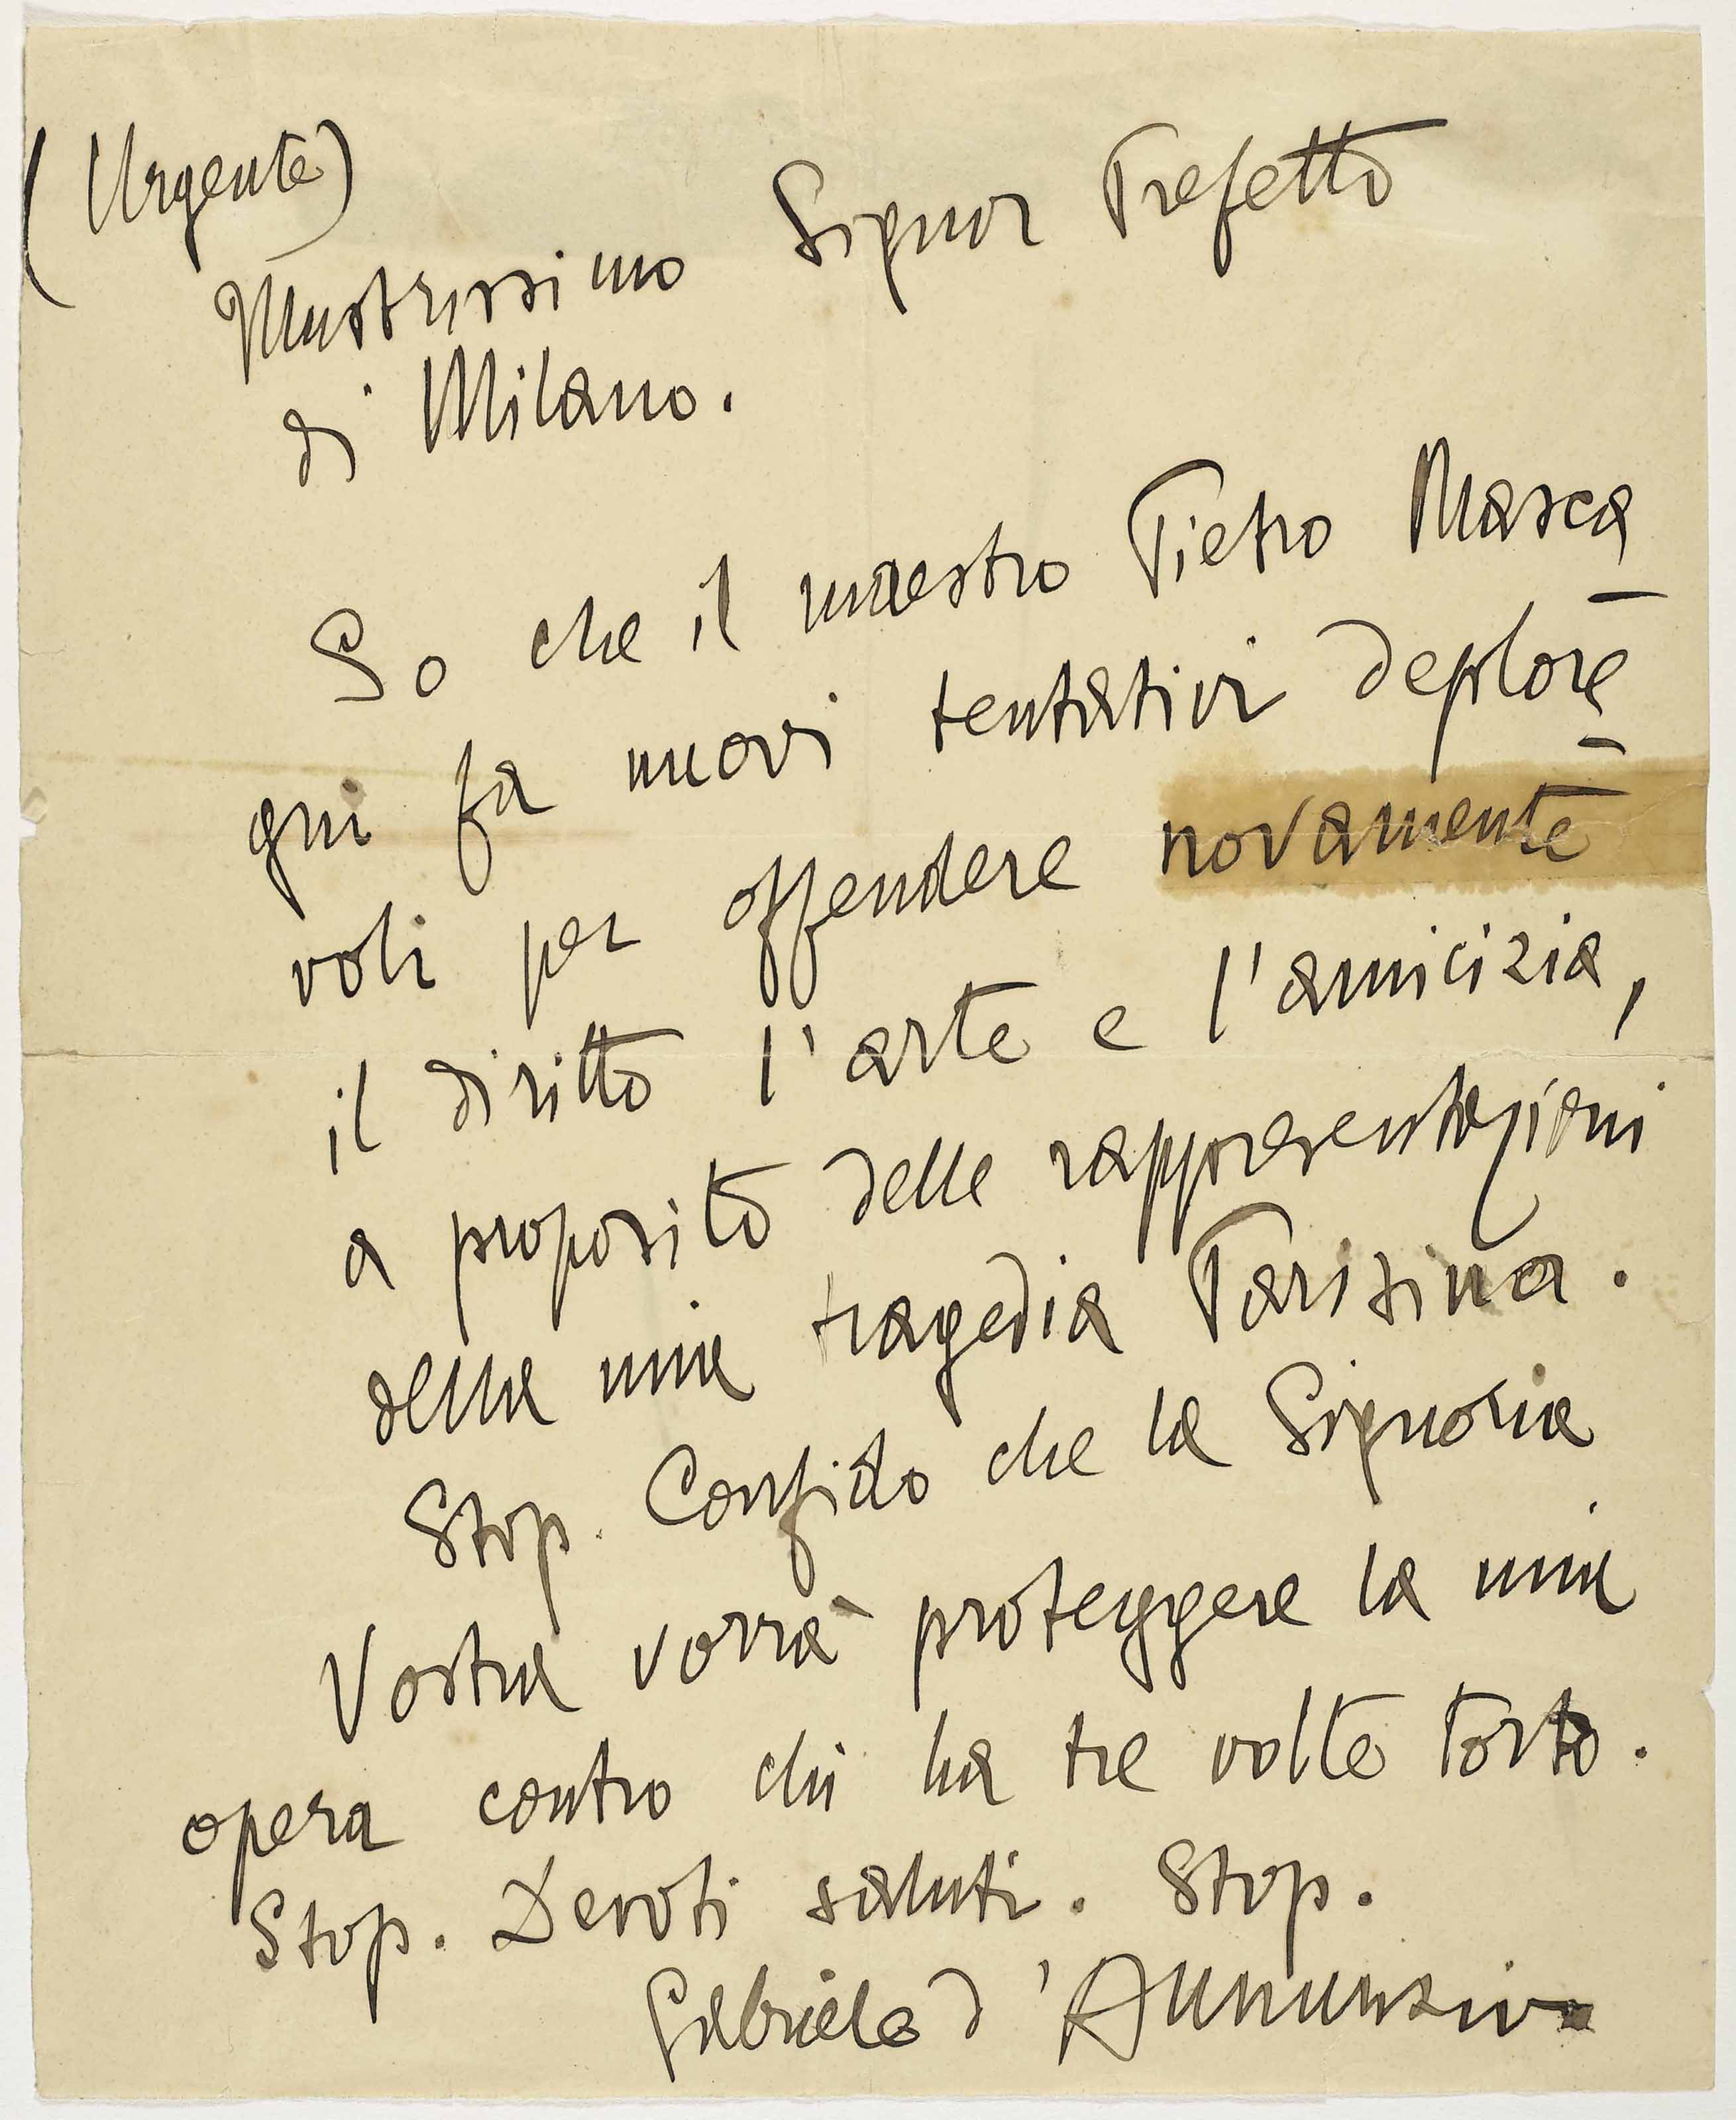 (Urgente)
Illustrissimo Signor Prefetto
di Milano.
So che il maestro Pietro Masca
gni fa nuovi tentativi deplore
voli per offendere novamente
il diritto l'arte e l'amicizia,
a proposito delle rappresentazioni
della mia tragedia Parisina.
Stop. Confido che la Signoria
Vostra vorrà proteggere la mia
opera contro chi ha tre volte torto.
Stop. Devoti saluti. Stop.
Gabriele d'Annunzio